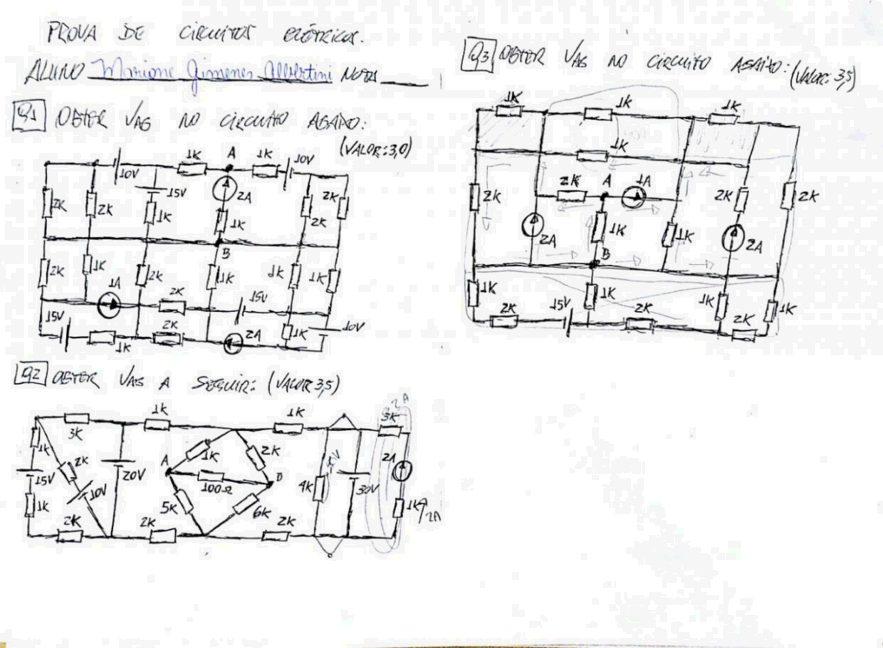 PROVA DE CIRCUITOS ELÉTRICOS.
ALUNO Marione Gimenes Albertini NOTA
Q1 OBTER VAB NO CIRCUITO ABAIXO:
(VALOR:3,0)
1K A 1K 10V
10V 15V 2A 2K
2K 2K 1K 1K 2K
B
2K 1K 2K 1K 1K 1K
1A 2K 15V
15V 1K 2K 2A 1K 10V
Q2 OBTER VAB A SEGUIR: (VALOR 3,5)
3K 1K 1K 3K 2A
1K 2K 20V 1K 2K 2A
15V 10V A 100Ω B 4K 30V
1K 5K 6K 1K 2A
2K 2K 2K
Q3 OBTER VAB NO CIRCUITO ABAIXO: (VALOR: 3,5)
1K 1K 1K
1K
2K 2K A 1A 2K 2K
2A 1K 1K 2A
B
1K 15V 1K 2K 1K 1K
2K 2K